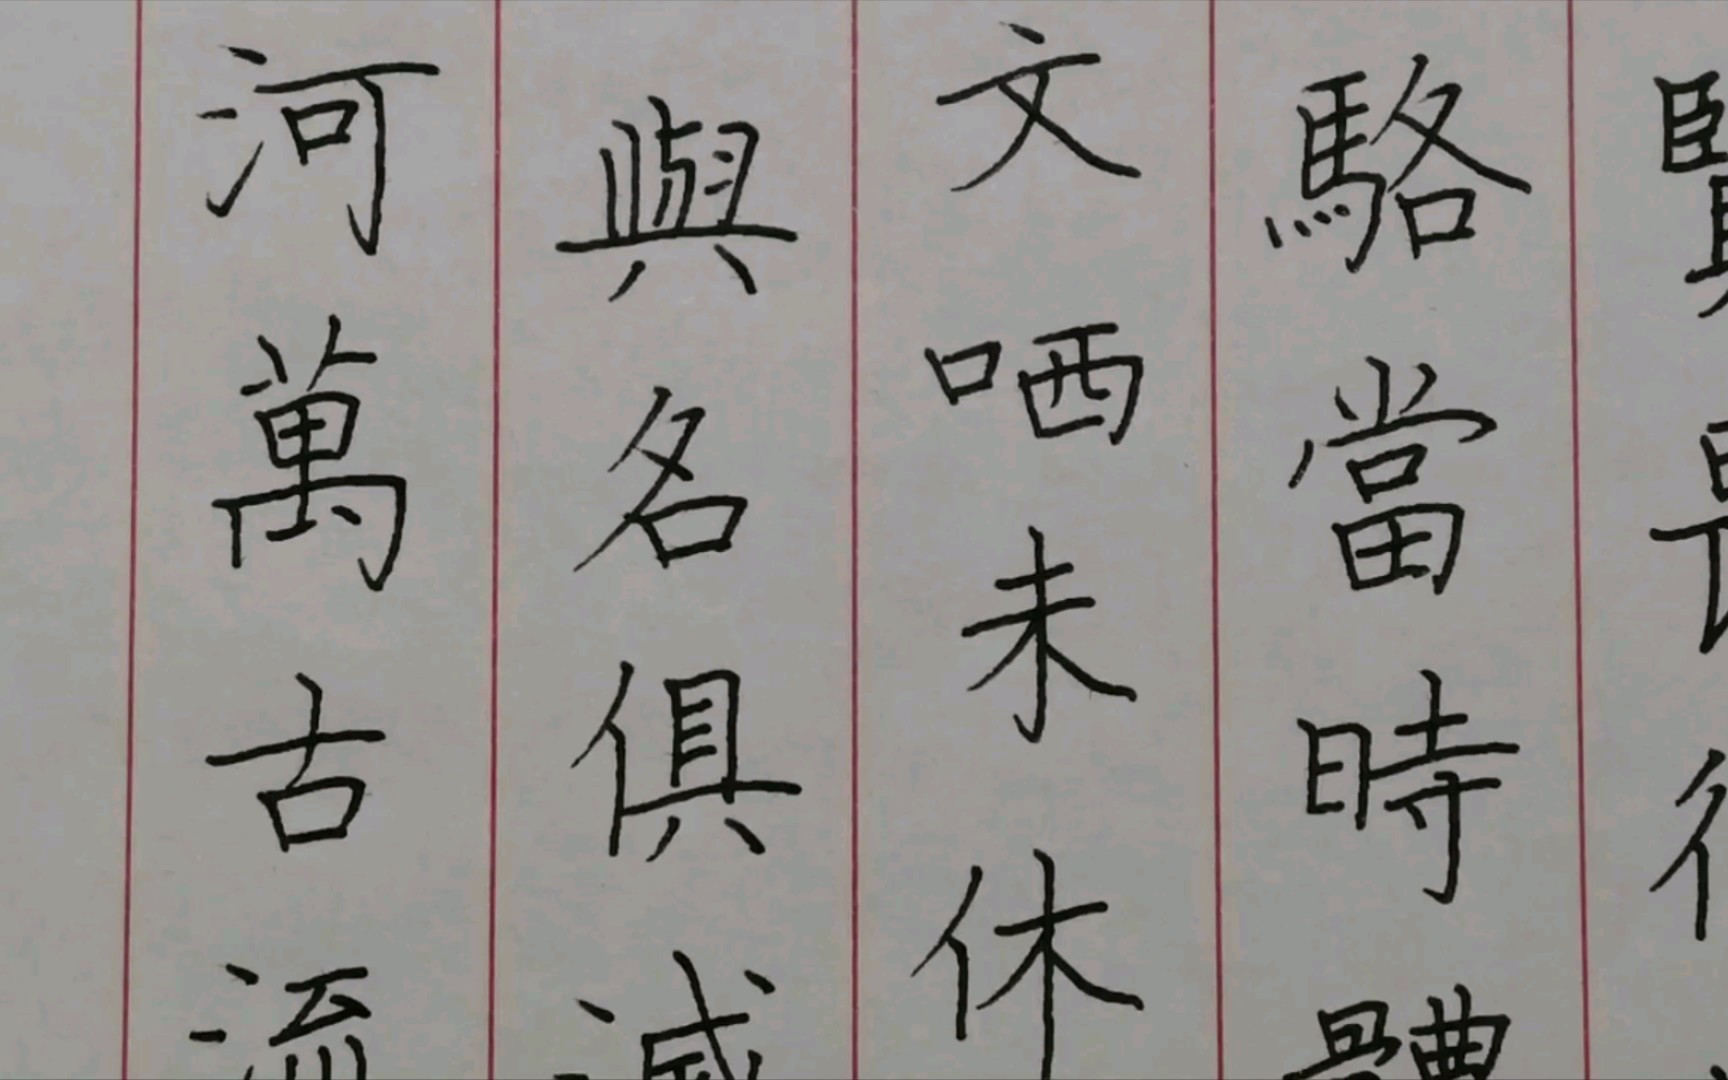 賢畏後
駱當時體
文哂未休
與名俱滅
河萬古流